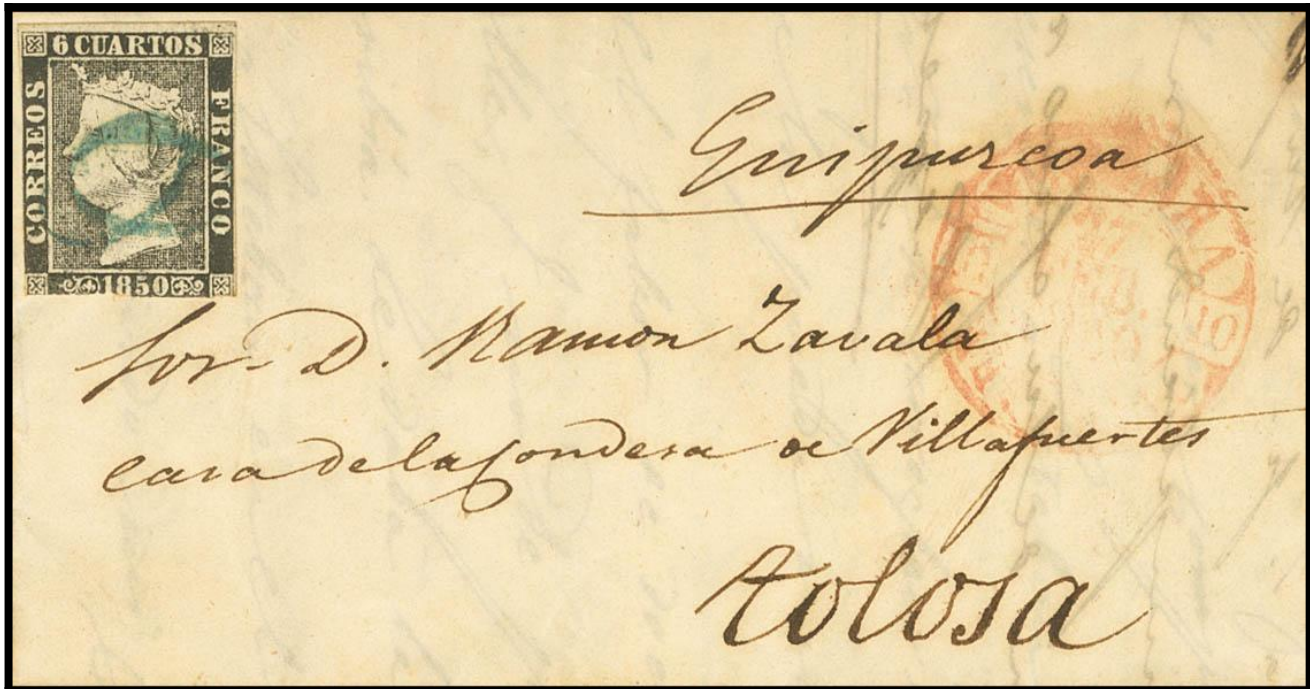 6 CUARTOS
CORREOS
FRANCO
1850
Guipurcoa
Sor. D. Ramon Zavala
casa de la Condesa de Villafuertes
tolosa